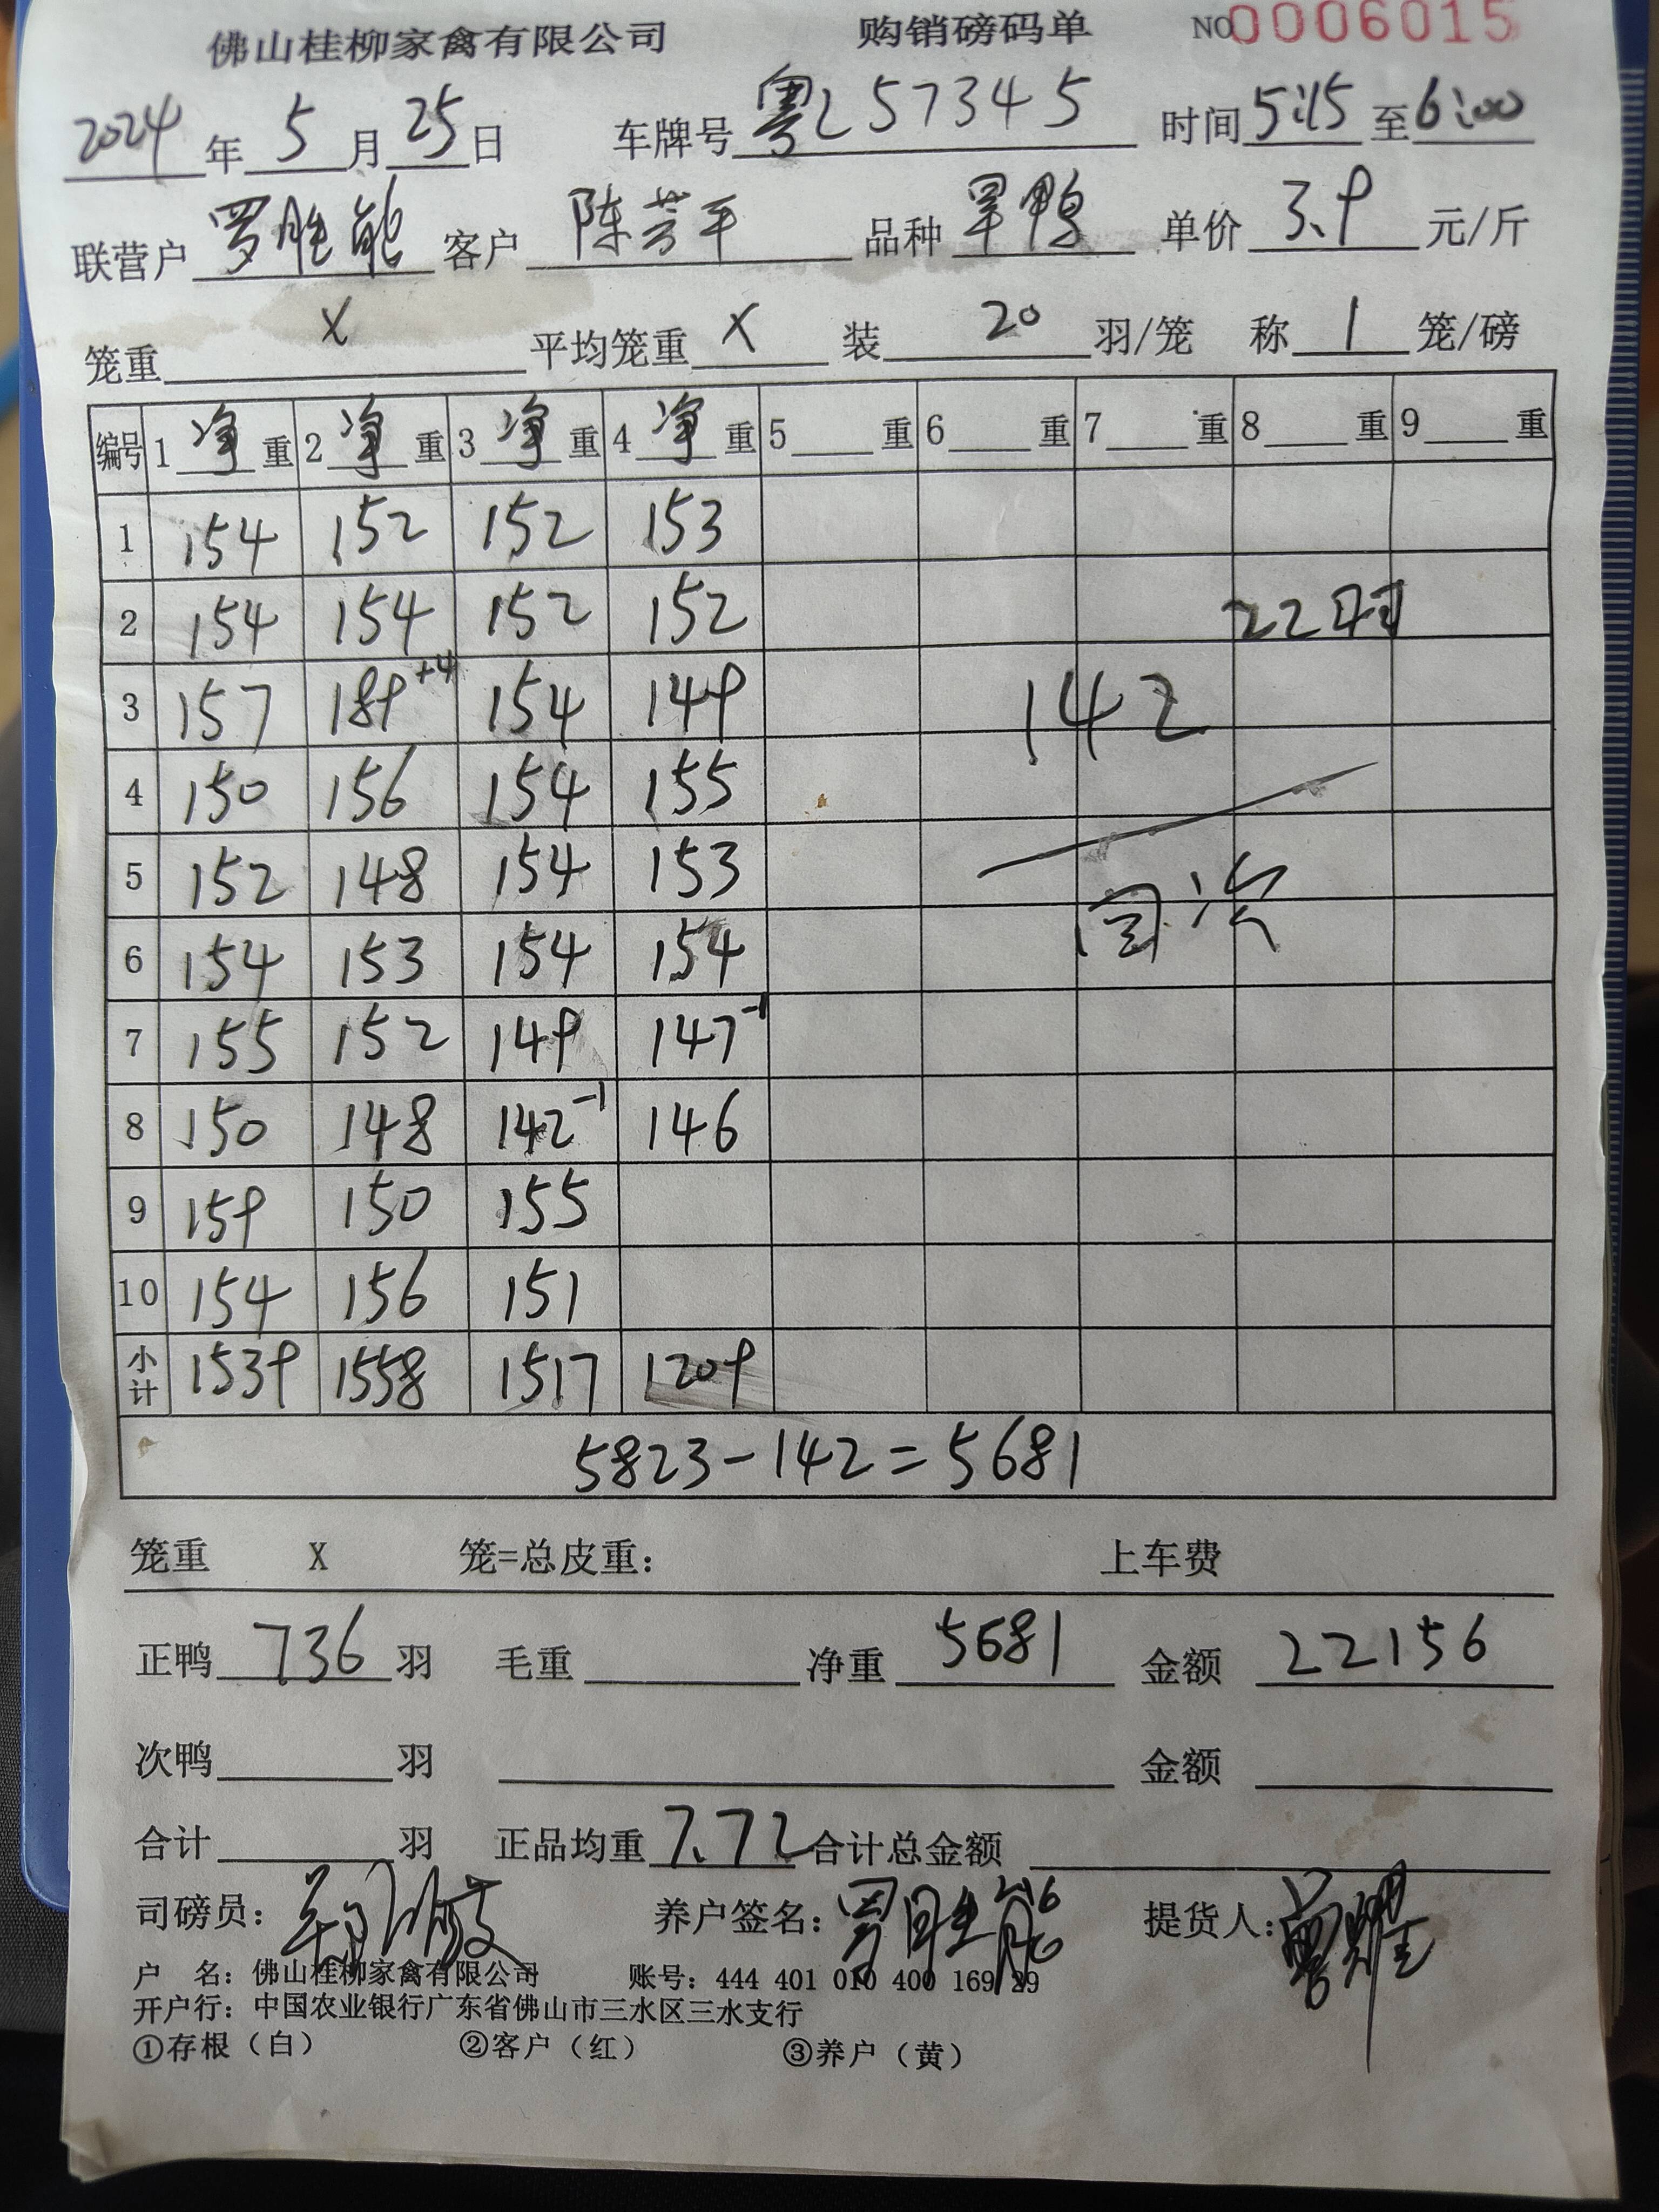 佛山桂柳家禽有限公司 购销磅码单 NO0006015
2024年5月25日 车牌号粤L57345 时间5:15至6:00
联营户罗胜能 客户陈芳平 品种旱鸭 单价3.9元/斤
笼重X 平均笼重X 装20羽/笼 称1笼/磅
编号 1净重 2净重 3净重 4净重 5重 6重 7重 8重 9重
1 154 152 152 153
2 154 154 152 152 22羽
3 157 189+4 154 149 142
4 150 156 154 155
5 152 148 154 153 次
6 154 153 154 154
7 155 152 149 147-1
8 150 148 142-1 146
9 159 150 155
10 154 156 151
小计 1539 1558 1517 1209
5823-142=5681
笼重 X 笼=总皮重: 上车费
正鸭736羽 毛重 净重5681 金额22156
次鸭 羽 金额
合计 羽 正品均重7.72 合计总金额
司磅员: 养户签名:罗胜能 提货人:
户 名:佛山桂柳家禽有限公司 账号:444 401 010 400 169 29
开户行:中国农业银行广东省佛山市三水区三水支行
①存根(白) ②客户(红) ③养户(黄)